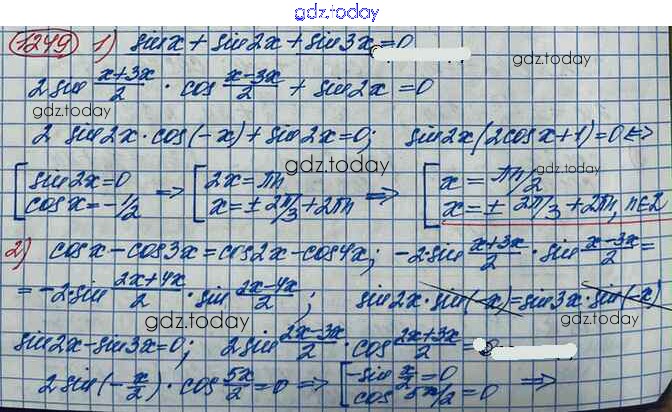 gdz.today
1249 1) sinx + sin2x + sin3x = 0
2 sin (x+3x)/2 · cos (x-3x)/2 + sin2x = 0
gdz.today
2 sin2x · cos(-x) + sin2x = 0; sin2x(2cosx+1) = 0 <=>
gdz.today
[ sin2x = 0 => [ 2x = πn => [ x = πn/2
cosx = -1/2 x = ± 2π/3 + 2πn x = ± 2π/3 + 2πn, n∈Z
2) cosx - cos3x = cos2x - cos4x; -2·sin (x+3x)/2 · sin (x-3x)/2 =
gdz.today
= -2·sin (2x+4x)/2 · sin (2x-4x)/2 ; sin2x·sin(-x) = sin3x·sin(-x)
gdz.today gdz.today
sin2x - sin3x = 0; 2sin (2x-3x)/2 · cos (2x+3x)/2 =
2 sin(-x/2) · cos 5x/2 = 0 => [ -sin x/2 = 0 =>
cos 5x/2 = 0